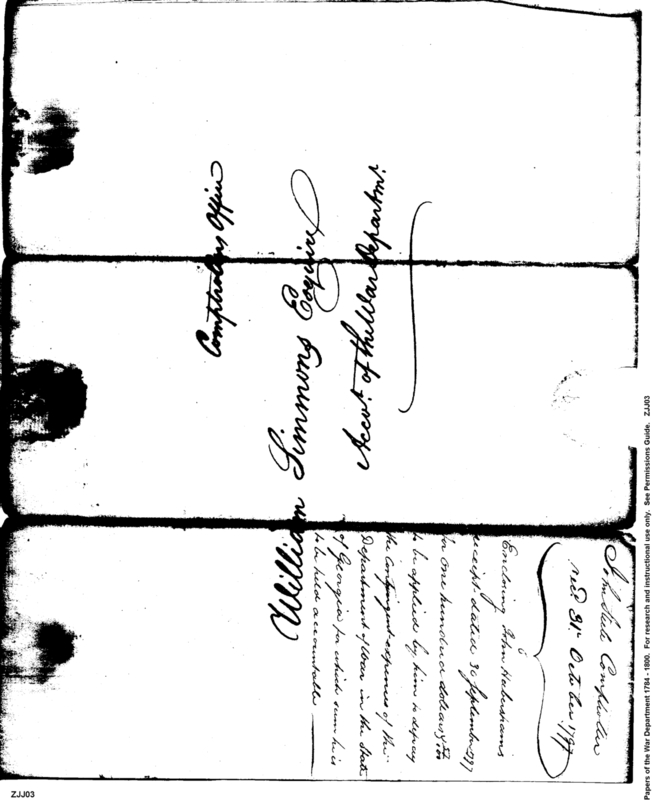 Comptrollers Office
William Simmons Esquire
Accot. of the War Departmt.
John Steele Comptroller
recd 31st October 1797
Enclosing John Habershams
receipt dated 30 September 1797
for one hundred dollars
to be applied by him to defray
the contingent expenses of the
Department of War in the State
of Georgia for which sum he is
to be held accountable
Papers of the War Department 1784 - 1800. For research and instructional use only. See Permissions Guide. ZJJ03
ZJJ03